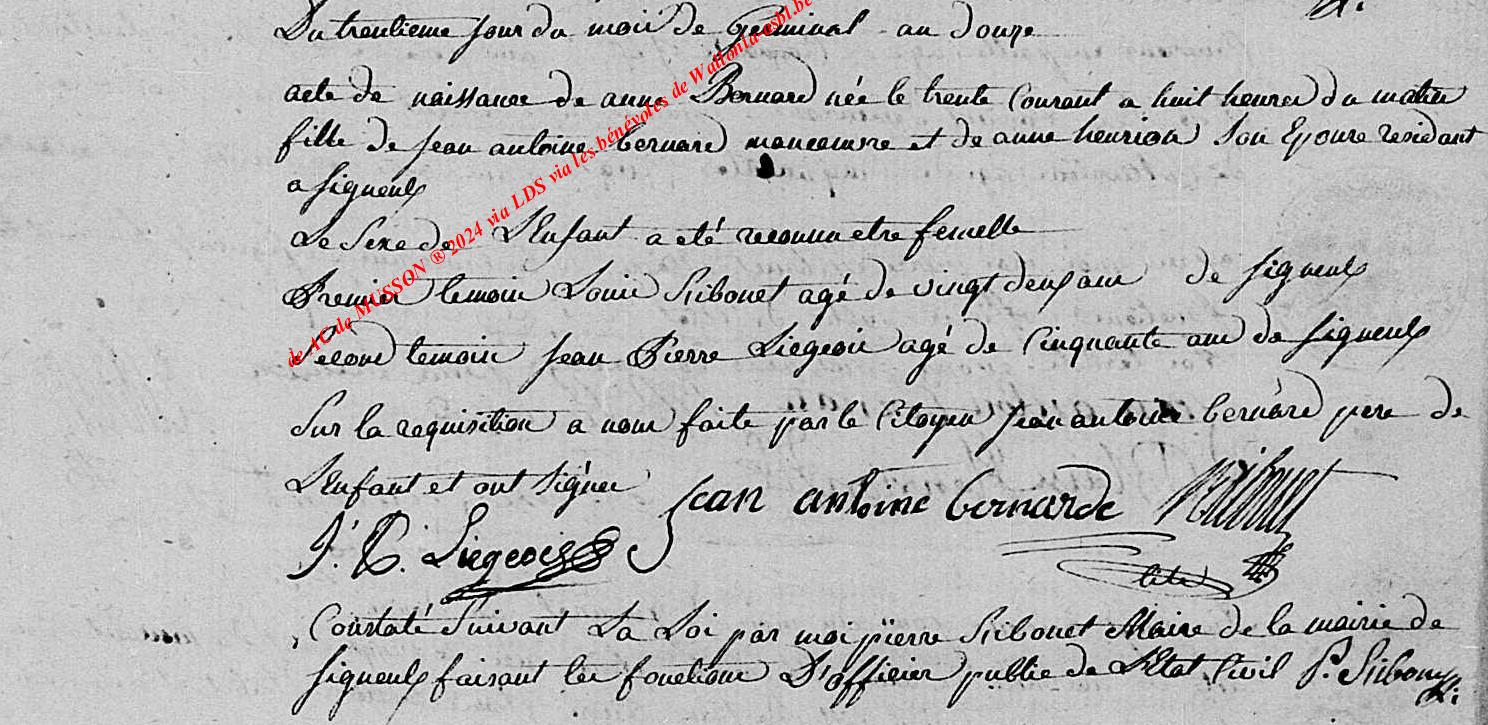 Du trentieme jour du mois de Germinal an douze
acte de naissance de anne Bernard née le trente Courant a huit heures du matin
fille de jean antoine bernard manoeuvre et de anne henrion Son Epouse residant
a signeulx
Le Sexe de L'Enfant a été reconnu etre femelle
Premier temoin Louis Ribonet agé de vingt deux ans de signeulx
Second temoin jean Pierre Liegeois agé de Cinquante ans de signeulx
Sur la requisition a nous faite par le Citoyen jean antoine bernard pere de
L'Enfant et ont signés jean antoine bernarde
J. P. Liegeois
Constaté Suivant La Loi par moi pierre Ribonet Maire de la mairie de
signeulx faisant les fonctions D'officier public de L'Etat Civil P.
de AC de MUSSON ® 2024 via LDS via les bénévoles de Wallonia-asbl.be